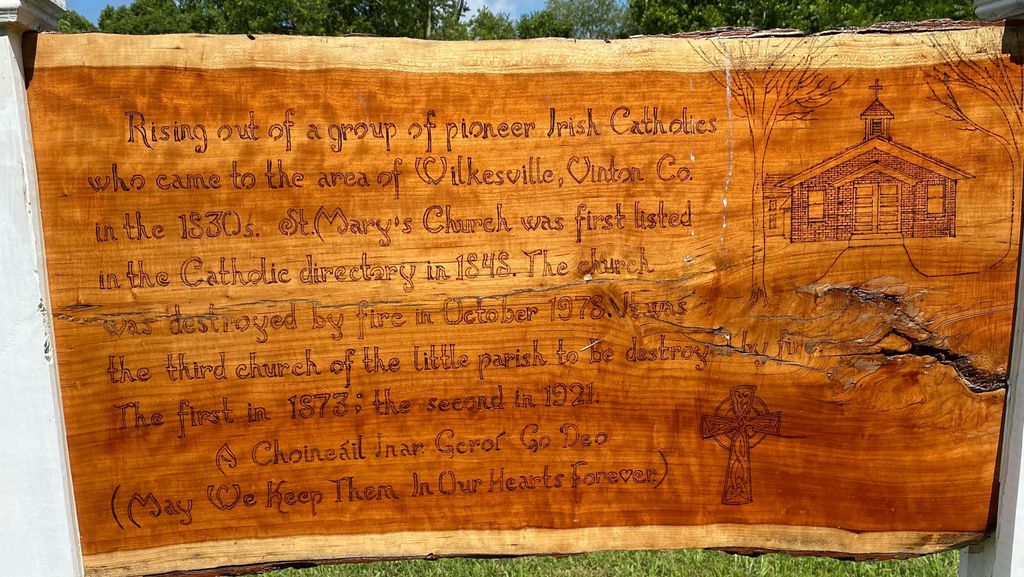 Rising out of a group of pioneer Irish Catholics
who came to the area of Wilkesville, Vinton Co.
in the 1830s. St. Mary's Church was first listed
in the Catholic directory in 1848. The church
was destroyed by fire in October 1978. It was
the third church of the little parish to be destroyed by fire
The first in 1873; the second in 1921.
A Choineáil Inar Gcroí Go Deo
(May We Keep Them In Our Hearts Forever.)